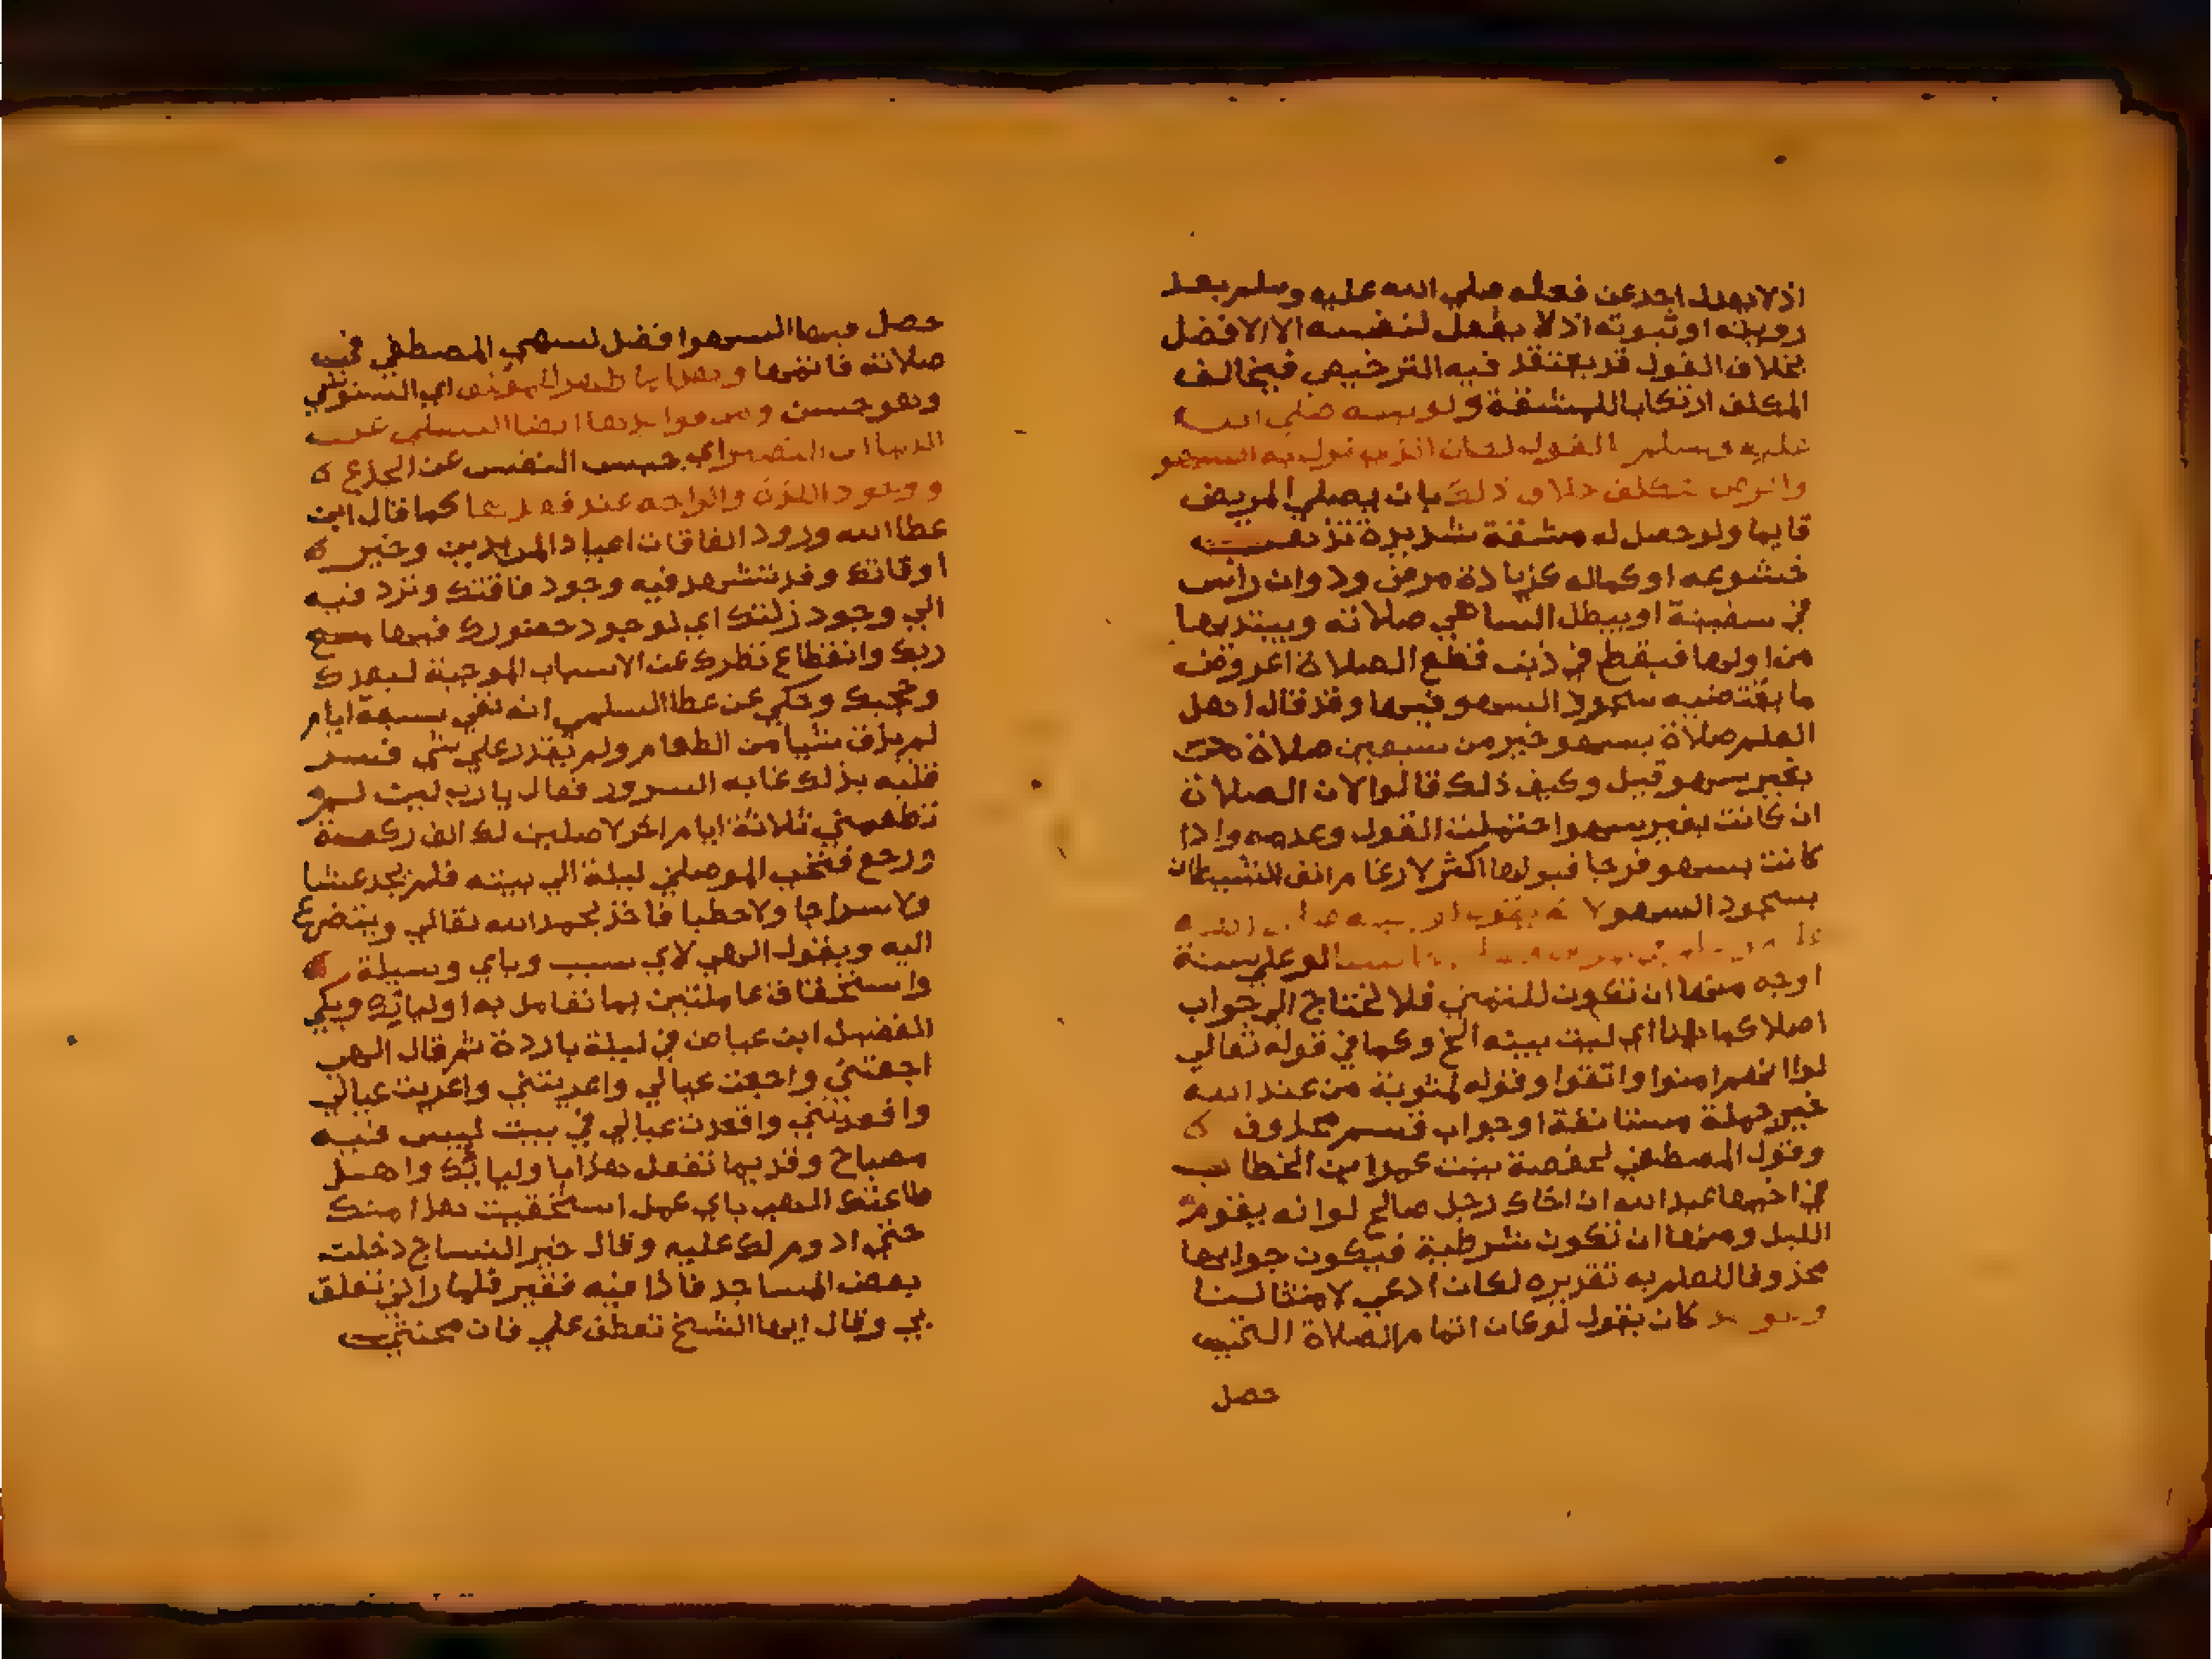 اذ لا يعدل احد عن فعله صلي الله عليه وسلم بعد
رويته او ثبوته اذ لا يفعل لنفسه الا الافضل
بخلاف القول قد يعتقد فيه الترخيص فيخالف
المكلف ارتكابا للمشقة ولو بينه صلي الله
عليه وسلم بالقول لكان الذي نزل به السهو
والمرض تكلف خلاف ذلك بان يصلي المريض
قايما ولو حصل له مشقة شديدة تذهب
خشوعه او كماله كزيادة مرض ودوران راس
في سفينة او يبطل الساهي صلاته ويبتديها
من اولها فيقع في ذنب قطع الصلاة اعروض
ما يقتضيه سجود السهو فيها وقد قال اهل
العلم صلاة بسهو خير من سبعين صلاة
بغير سهو قيل وكيف ذلك قالوا لان الصلاة
ان كانت بغير سهو احتملت القبول وعدمه واذا
كانت بسهو فرجا قبولها اكثر لارغام انف الشيطان
بسجود السهو
لو علي ستة
اوجه منها ان تكون للتمني فلا تحتاج الي جواب
اصلا كما هنا اي ليت بينه الخ وكما في قوله تعالي
لو انهم امنوا واتقوا وقوله لمثوبة من عند الله
خير جملة مستانفة او جواب قسم محذوف
وقول المصطفي لحفصة بنت عمر ابن الخطاب
في اخيها عبد الله ان اخاك رجل صالح لو انه يقوم
الليل ومنها ان تكون شرطية فيكون جوابها
محذوفا للعلم به تقديره لكان ادعي لامتثالنا
كان يقول لو كان اتمام الصلاة التي
حصل
حصل فيها السهو افضل لسهي المصطفي في
صلاته فاتمها وهذا ما ظهر للمولف اي التتوني
وهو حسن ومن فوايدها ايضا التسلي عن
الدنيا اي التصبر اي حبس النفس عن الجزع
ووجود اللذة والراحة عند فقدها كما قال ابن
عطا الله ورود الفاقات اعياد المريدين وخير
اوقاتك وقد تشهد فيه وجود فاقتك وترد فيه
الي وجود زلتك اي لوجود حضورك فيها مع
ربك وانقطاع نظرك عن الاسباب الموجبة لبعدك
وحجبك وحكي عن عطا السلمي انه بقي سبعة ايام
لم يذق شيا من الطعام ولم يقدر علي شي فسر
قلبه بذلك غاية السرور فقال يا رب ليت لو
تطعمني ثلاثة ايام اخر لاصلين لك الف ركعة
ورجع فتح الموصلي ليلة الي بيته فلم يجد عشا
ولا سراجا ولا حطبا فاخذ يحمد الله تعالي ويتضرع
اليه ويقول الهي لاي سبب وباي وسيلة
واستحقاق عاملتني بما تعامل به اولياك وبكي
الفضيل ابن عياض في ليلة باردة ثم قال الهي
اجعتني واجعت عيالي واعريتني واعريت عيالي
واقعدتني واقعدت عيالي في بيت ليس فيه
مصباح وقد يما تفعل هذا باوليايك واهل
طاعتك الهي باي عمل استحقيت هذا منك
حتي ادوم لك عليه وقال خير النساج دخلت
بعض المساجد فاذا فيه فقير فلما راني تعلق
بي وقال ايها الشيخ تعطف علي فان محنتي